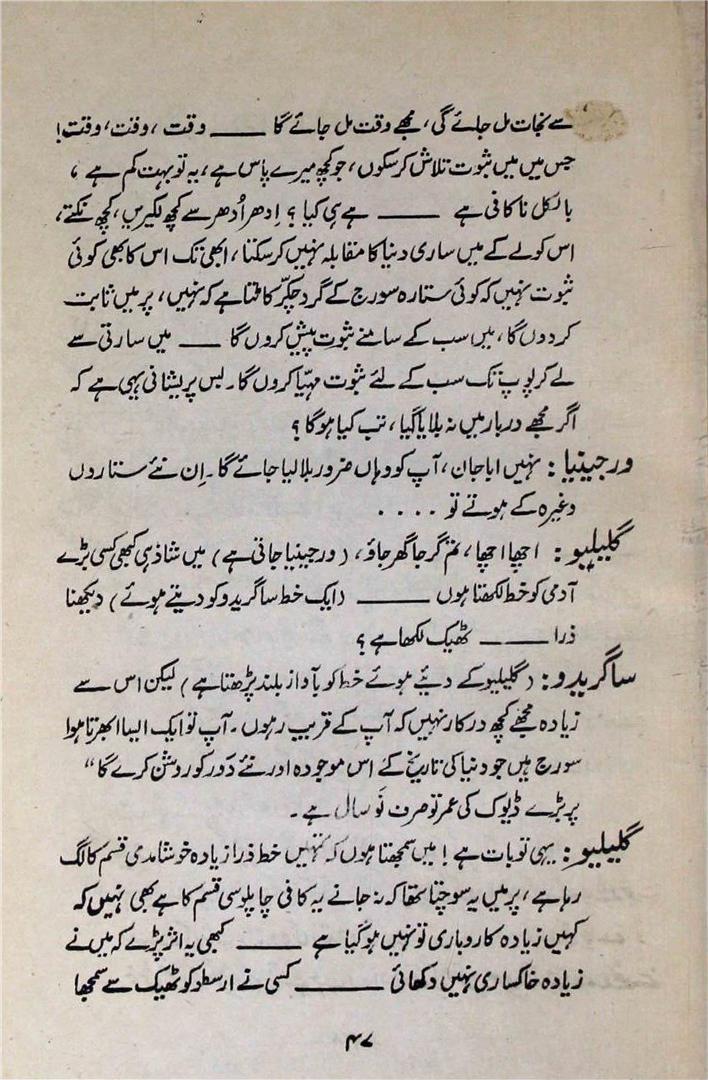 سے نجات مل جائے گی، مجھے وقت مل جائے گا ــــــ وقت، وقت، وقت!
جس میں میں ثبوت تلاش کر سکوں، جو کچھ میرے پاس ہے، یہ تو بہت کم ہے،
بالکل ناکافی ہے ــــــ ہے ہی کیا؟ اِدھر اُدھر سے کچھ لکیریں، کچھ نکتے،
اس کو لے کے میں ساری دنیا کا مقابلہ نہیں کر سکتا، ابھی تک اس کا بھی کوئی
ثبوت نہیں کہ کوئی ستارہ سورج کے گرد چکّر کاٹتا ہے کہ نہیں، پر میں ثابت
کر دوں گا، میں سب کے سامنے ثبوت پیش کروں گا ــــــ میں سارتی سے
لے کر پوپ تک سب کے لئے ثبوت مہیّا کروں گا۔ بس پریشانی یہی ہے کہ
اگر مجھے دربار میں نہ بلایا گیا، تب کیا ہو گا؟
ورجینیا: نہیں ابا جان، آپ کو وہاں ضرور بلا لیا جائے گا۔ اِن نئے ستاروں
وغیرہ کے ہوتے تو ....
گلیلیو: اچھا اچھا، تم گرجا گھر جاؤ، (ورجینیا جاتی ہے) میں شاذ ہی کبھی کسی بڑے
آدمی کو خط لکھتا ہوں ــــــ (ایک خط ساگریدو کو دیتے ہوئے) دیکھنا
ذرا ــــــ ٹھیک لکھا ہے؟
ساگریدو: (گلیلیو کے دیئے ہوئے خط کو بآواز بلند پڑھتا ہے) لیکن اس سے
زیادہ مجھے کچھ درکار نہیں کہ آپ کے قریب رہوں۔ آپ تو ایک ایسا ابھرتا ہوا
سورج ہیں جو دنیا کی تاریخ کے اس موجودہ اور نئے دَور کو روشن کرے گا“
پر بڑے ڈیوک کی عمر تو صرف نَو سال ہے۔
گلیلیو: یہی تو بات ہے! میں سمجھتا ہوں کہ تمہیں خط ذرا زیادہ خوشامدی قسم کا لگ
رہا ہے، پر میں یہ سوچتا تھا کہ نہ جانے یہ کافی چاپلوسی قسم کا ہے بھی نہیں کہ
کہیں زیادہ کاروباری تو نہیں ہو گیا ہے ــــــ کبھی یہ اثر پڑے کہ میں نے
زیادہ خاکساری نہیں دکھائی ــــــ کسی نے ارسطو کو ٹھیک سے سمجھا
۴۷